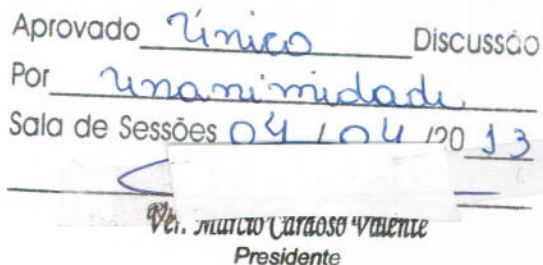 Aprovado Único Discussão
Por unanimidade
Sala de Sessões 04 / 04 /20 13
Ver. Marcio Cardoso Valente
Presidente